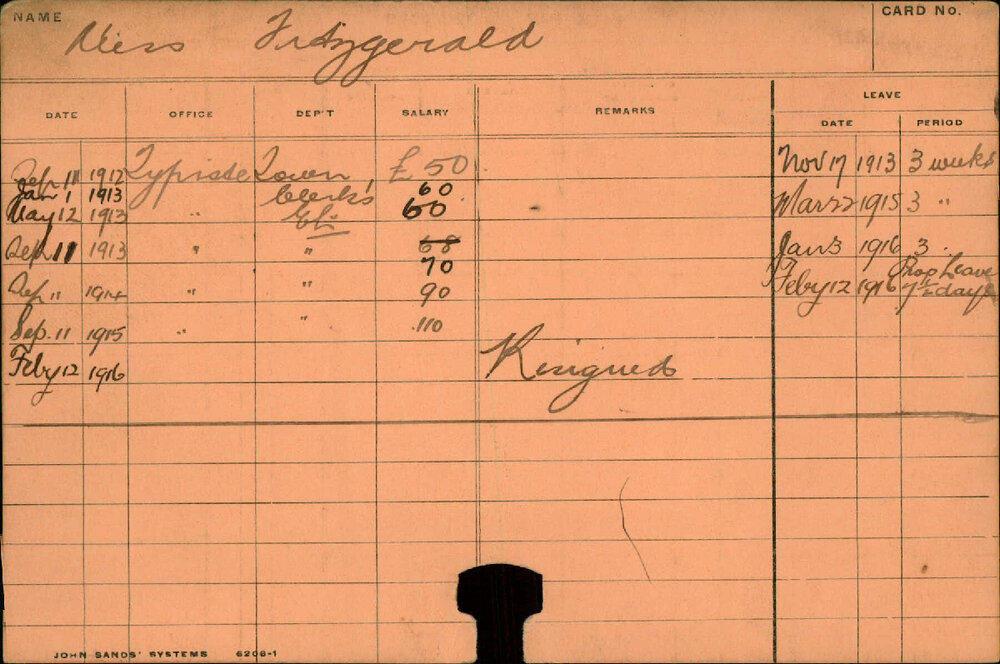 NAME Miss Fitzgerald CARD No.
LEAVE
DATE OFFICE DEP'T SALARY REMARKS DATE PERIOD
Sep. 11 1912 Typiste Town £50 Nov 17 1913 3 weeks
Jan 1 1913 Clerks' 60
May 12 1913 " 60 Mar 22 1915 3 "
Sep. 11 1913 " " 68 Jan 3 1916 3
70 Prop Leave
Sep " 1914 " " 90 Feby 12 1916 7½ days
Sep. 11 1915 " " 110
Feby 12 1916 Resigned
JOHN SANDS' SYSTEMS 6206-1